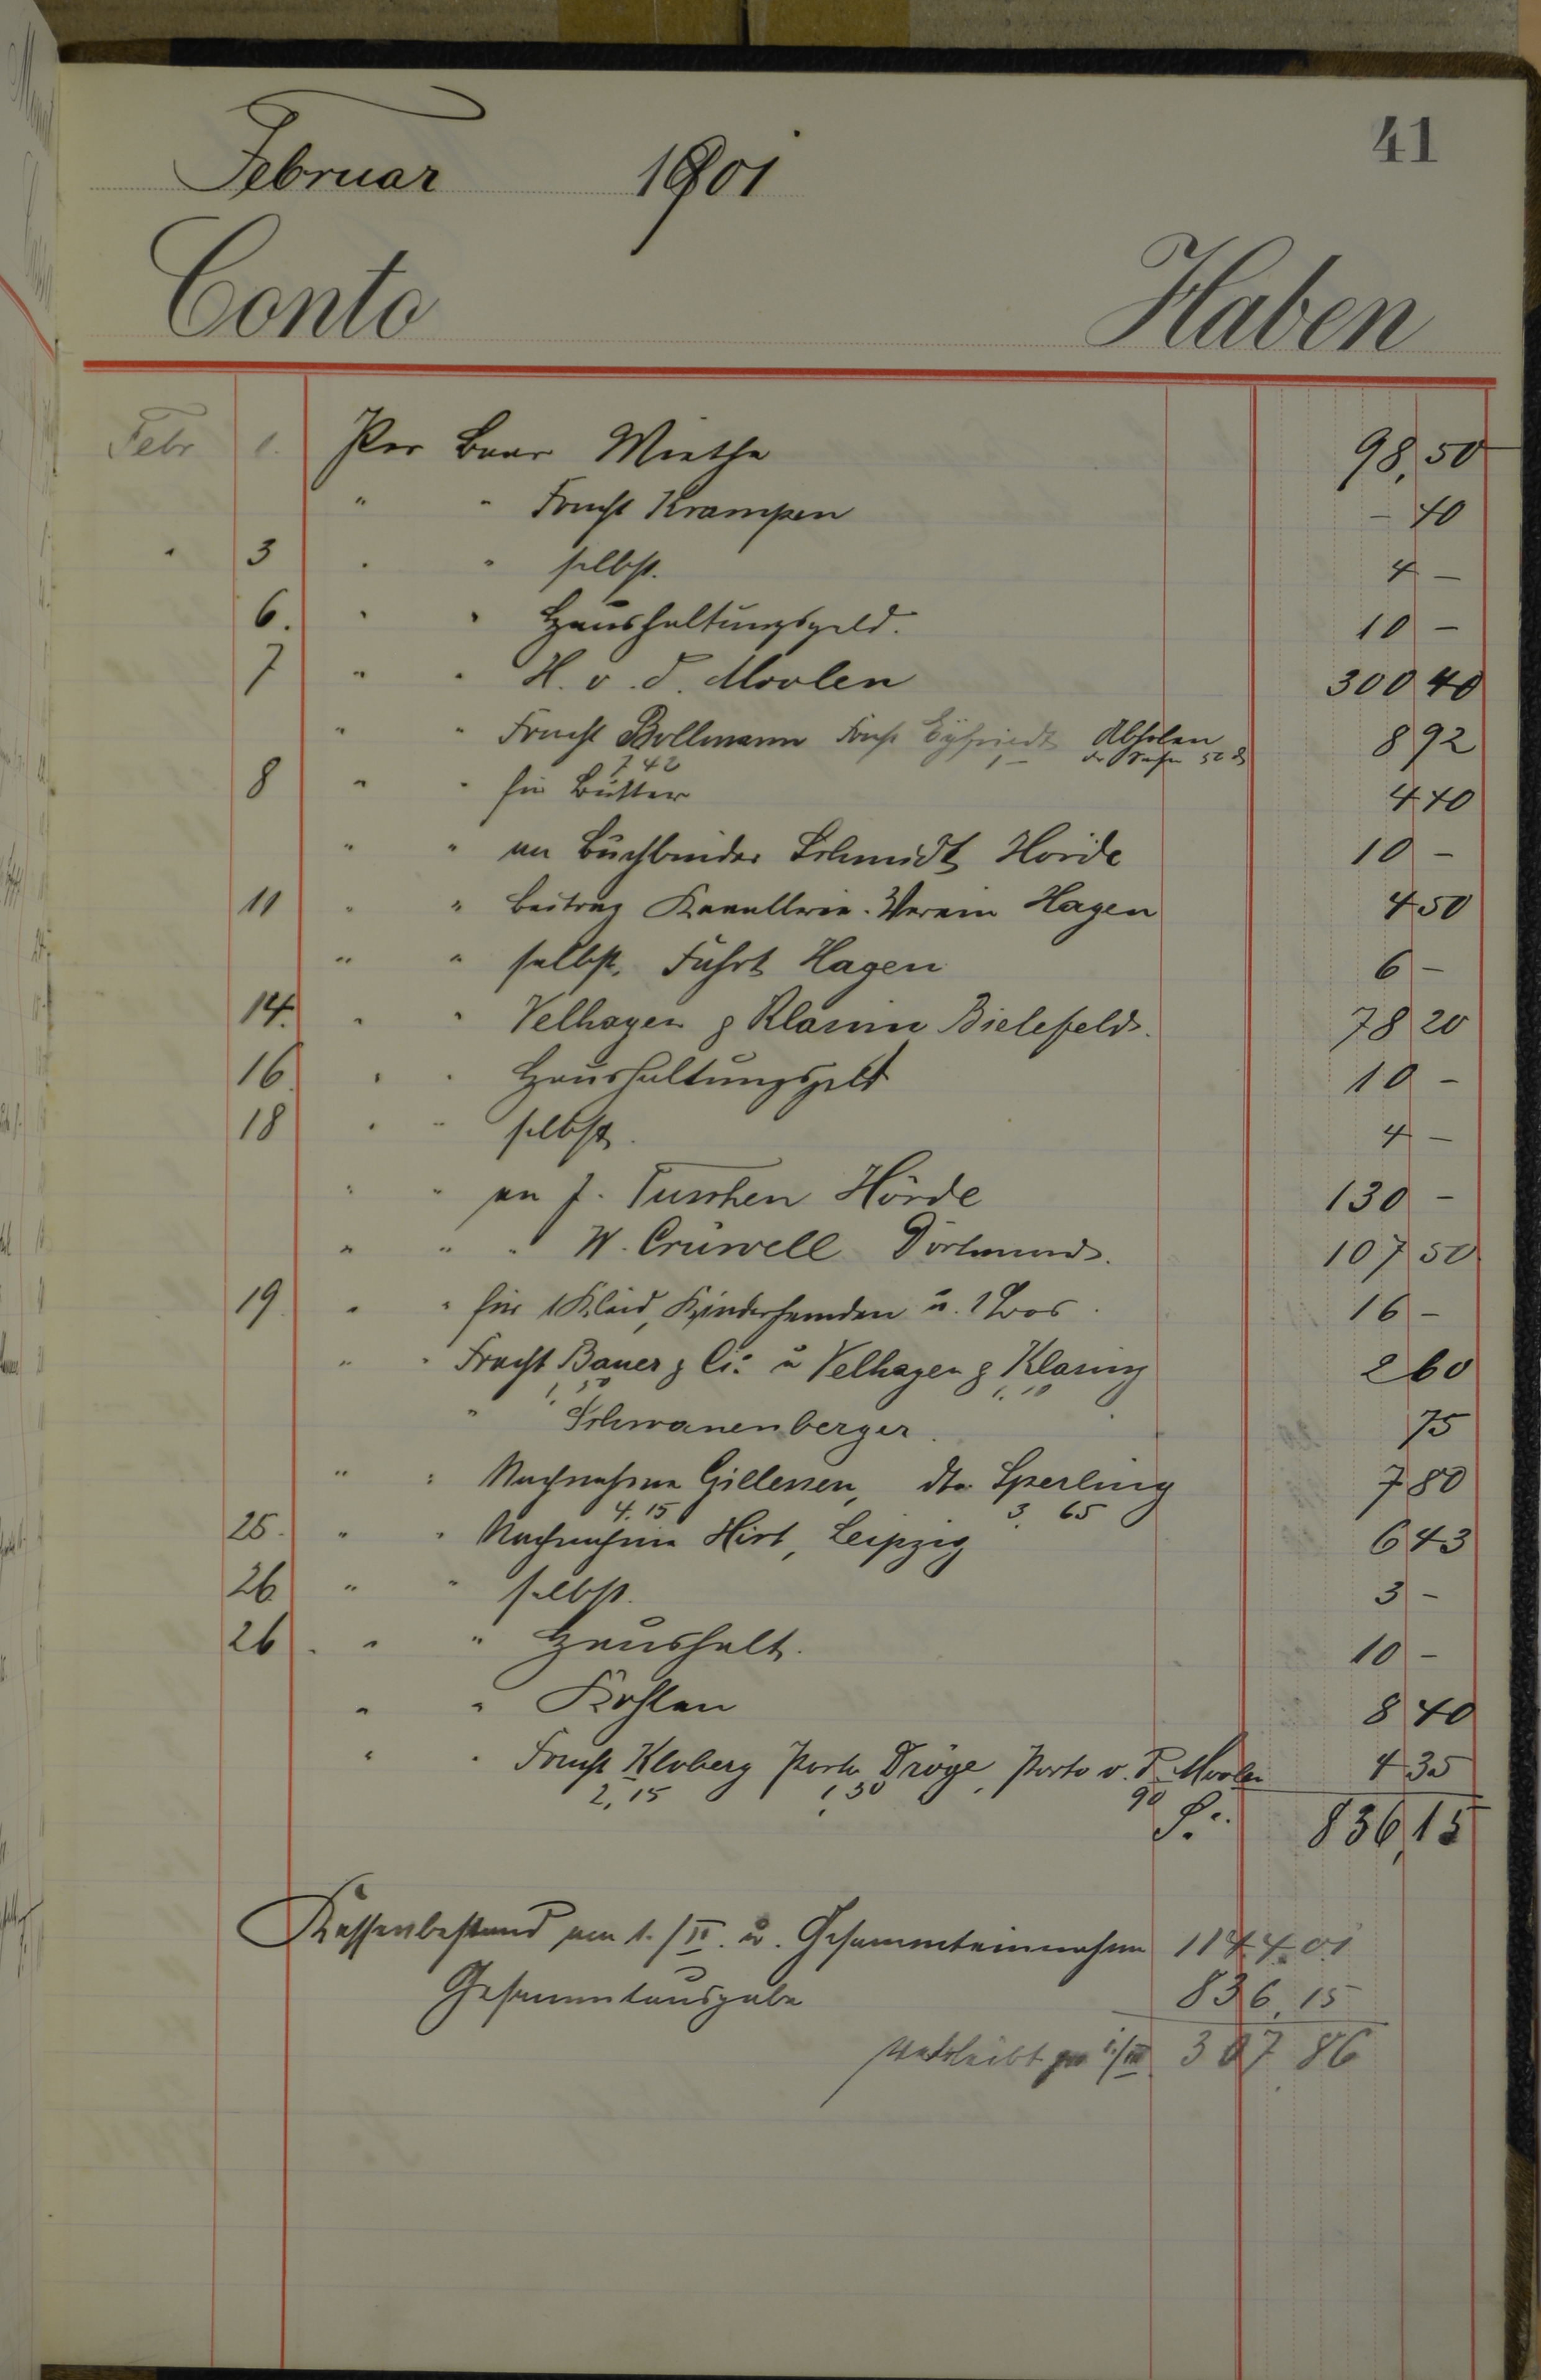 41
Februar 1901
Conto Haben
Febr 1. Per Baar Miethe 98,50
" " Fracht Krampen - 40
" 3 " " selbst. 4 -
6. " " Haushaltungsgeld. 10 -
7 " " H. v. d. Moolen 300 40
" " Fracht Bollmann Fracht Abholen 8 92
7 42 1 - 50 ₰
8 " " für Butter 4 40
" " an Buchbinder Schmidt Hörde 10 -
11 " " Beitrag Kavallerie-Verein Hagen 4 50
" " selbst, Fahrt Hagen 6 -
14. " " Velhagen & Klasing Bielefeld. 78 20
16. " " Haushaltungsgeld 10 -
18 " " selbst. 4 -
" " an J. Tuschen Hörde 130 -
" " " W. Crüwell Dortmund. 107 50
19 " " für 1 Kleid, Kinderhemden u. 1 Loos. 16 -
" " Fracht Bauer & Cie u Velhagen & Klasing 2 60
1, 50 1, 10
" Schwanenberger. 75
" " Nachnahme Gillessen, dto Sperling 7 80
4. 15 3. 65
25. " " Nachnahme Hirt, Leipzig 6 43
26 " " selbst. 3 -
26 " " Haushalt. 10 -
" " Kohlen 8 40
" " Fracht Kloberg Porto Dröge, Porto v. d. Moolen 4 35
2,15 1,30 90
S. 836,15
Kassenbestand am 1./II. u. Gesammteinnahme 1144.01
Gesammtausgabe 836,15
Verbleibt per 1./III 307 86